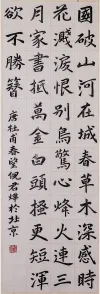 國破山河在城春草木深感時
花濺淚恨別鳥驚心烽火連三
月家書抵萬金白頭搔更短渾
欲不勝簪 唐杜甫春望倪君煒於北京